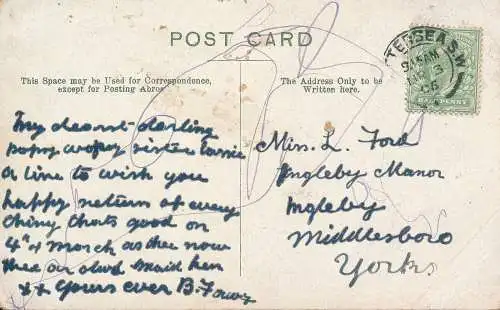 POST CARD
This Space may be Used for Correspondence,
except for Posting Abroa
The Address Only to be
Written here.
TERSEA S.W
9.15 AM
3
06
HALFPENNY
My dearest darling
popsy wopsy sister
a line to wish you
happy return of every
thing thats good on
4th March as
old maid
xx Yours ever B.
Miss. L. Ford
Ingleby Manor
Ingleby
Middlesboro
Yorks